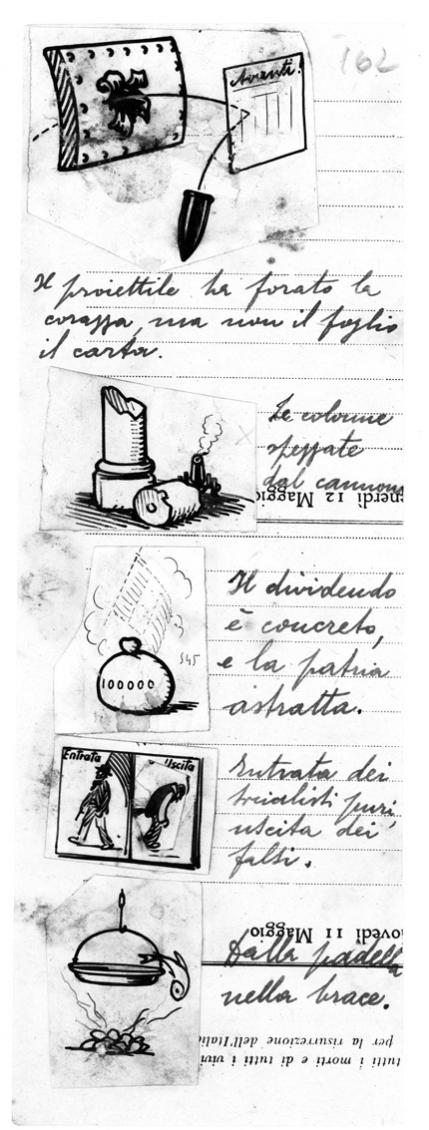 162
Avanti!
Il proiettile ha forato la
corazza, ma non il foglio
il carta.
Le colonne
spezzate
dal cannone
Venerdì 12 Maggio
Il dividendo
è concreto,
e la patria
astratta.
545
100000
Entrata
Uscita
Entrata dei
socialisti puri,
uscita dei
falsi.
Giovedì 11 Maggio
Dalla padella
nella brace.
per la risurrezione dell'Itali
tutti i morti e di tutti i vivi